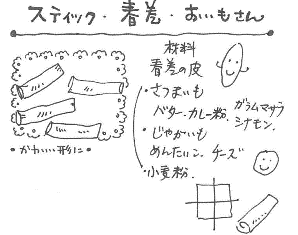 スティック・春巻・おいもさん
材料
春巻の皮
・さつまいも
バター、カレー粉、ガラムマサラ
シナモン、
・じゃがいも
めんたいこ、チーズ
・小麦粉、
・かわいい形に・